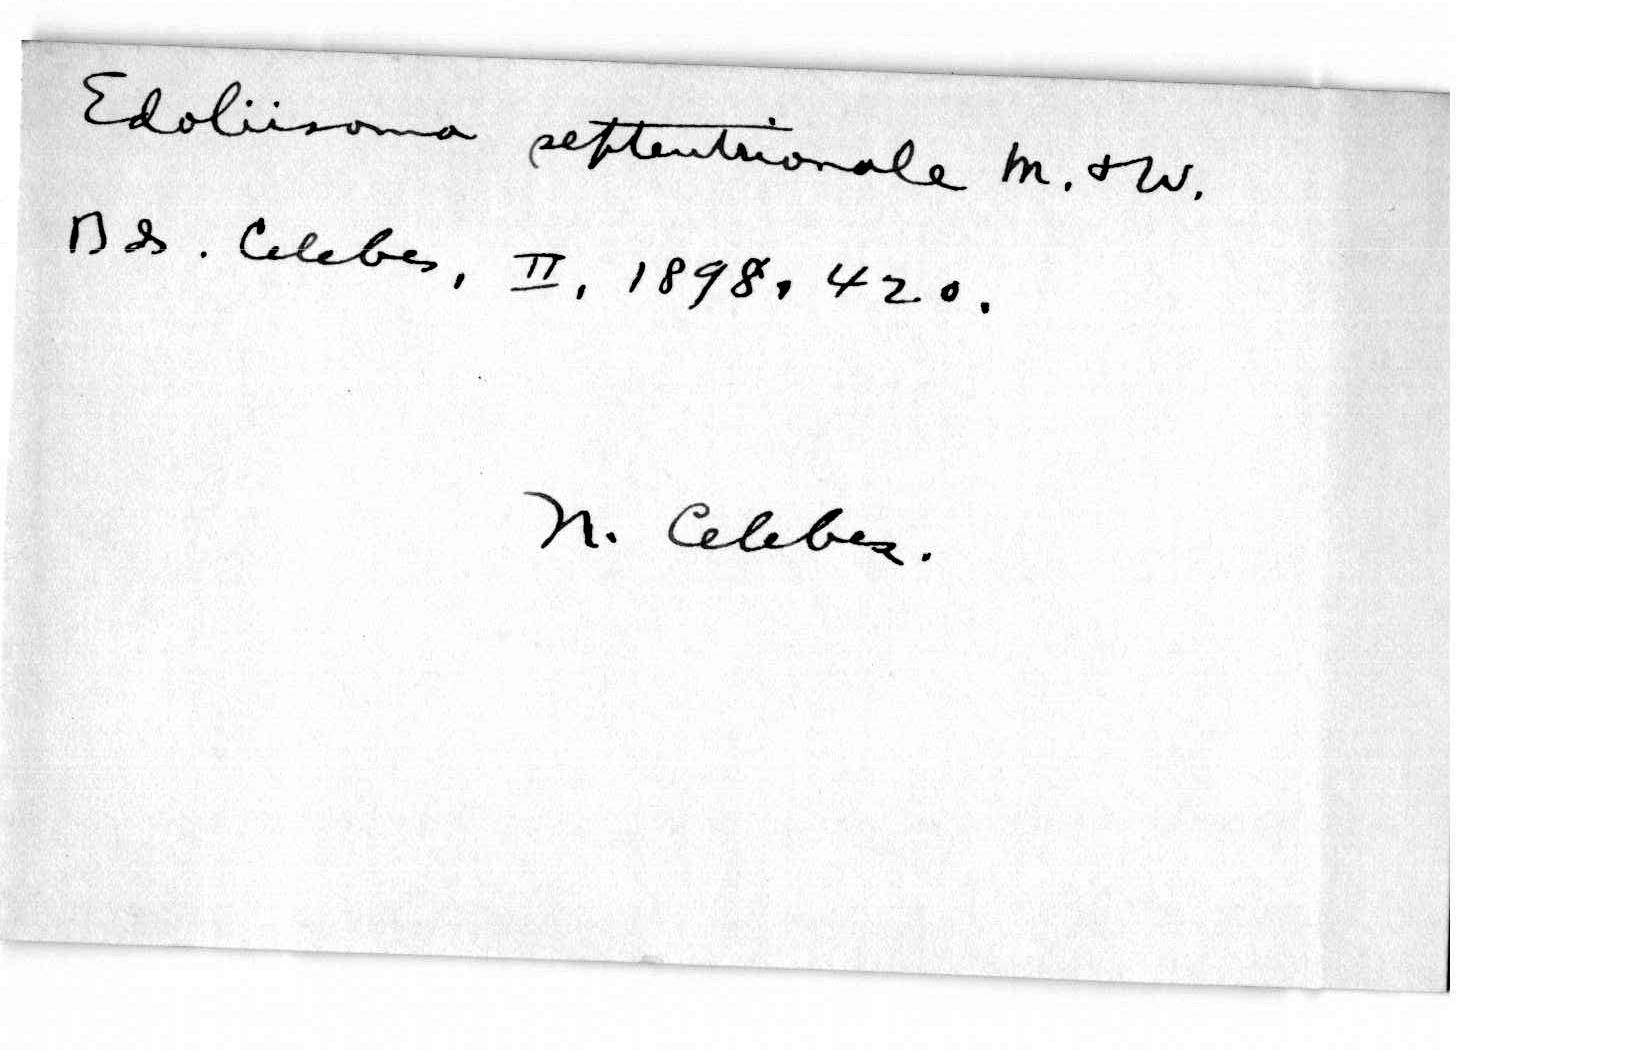 Edoliisoma septentrionale M. & W.
Bds. Celebes, II, 1898, 420.
N. Celebes.